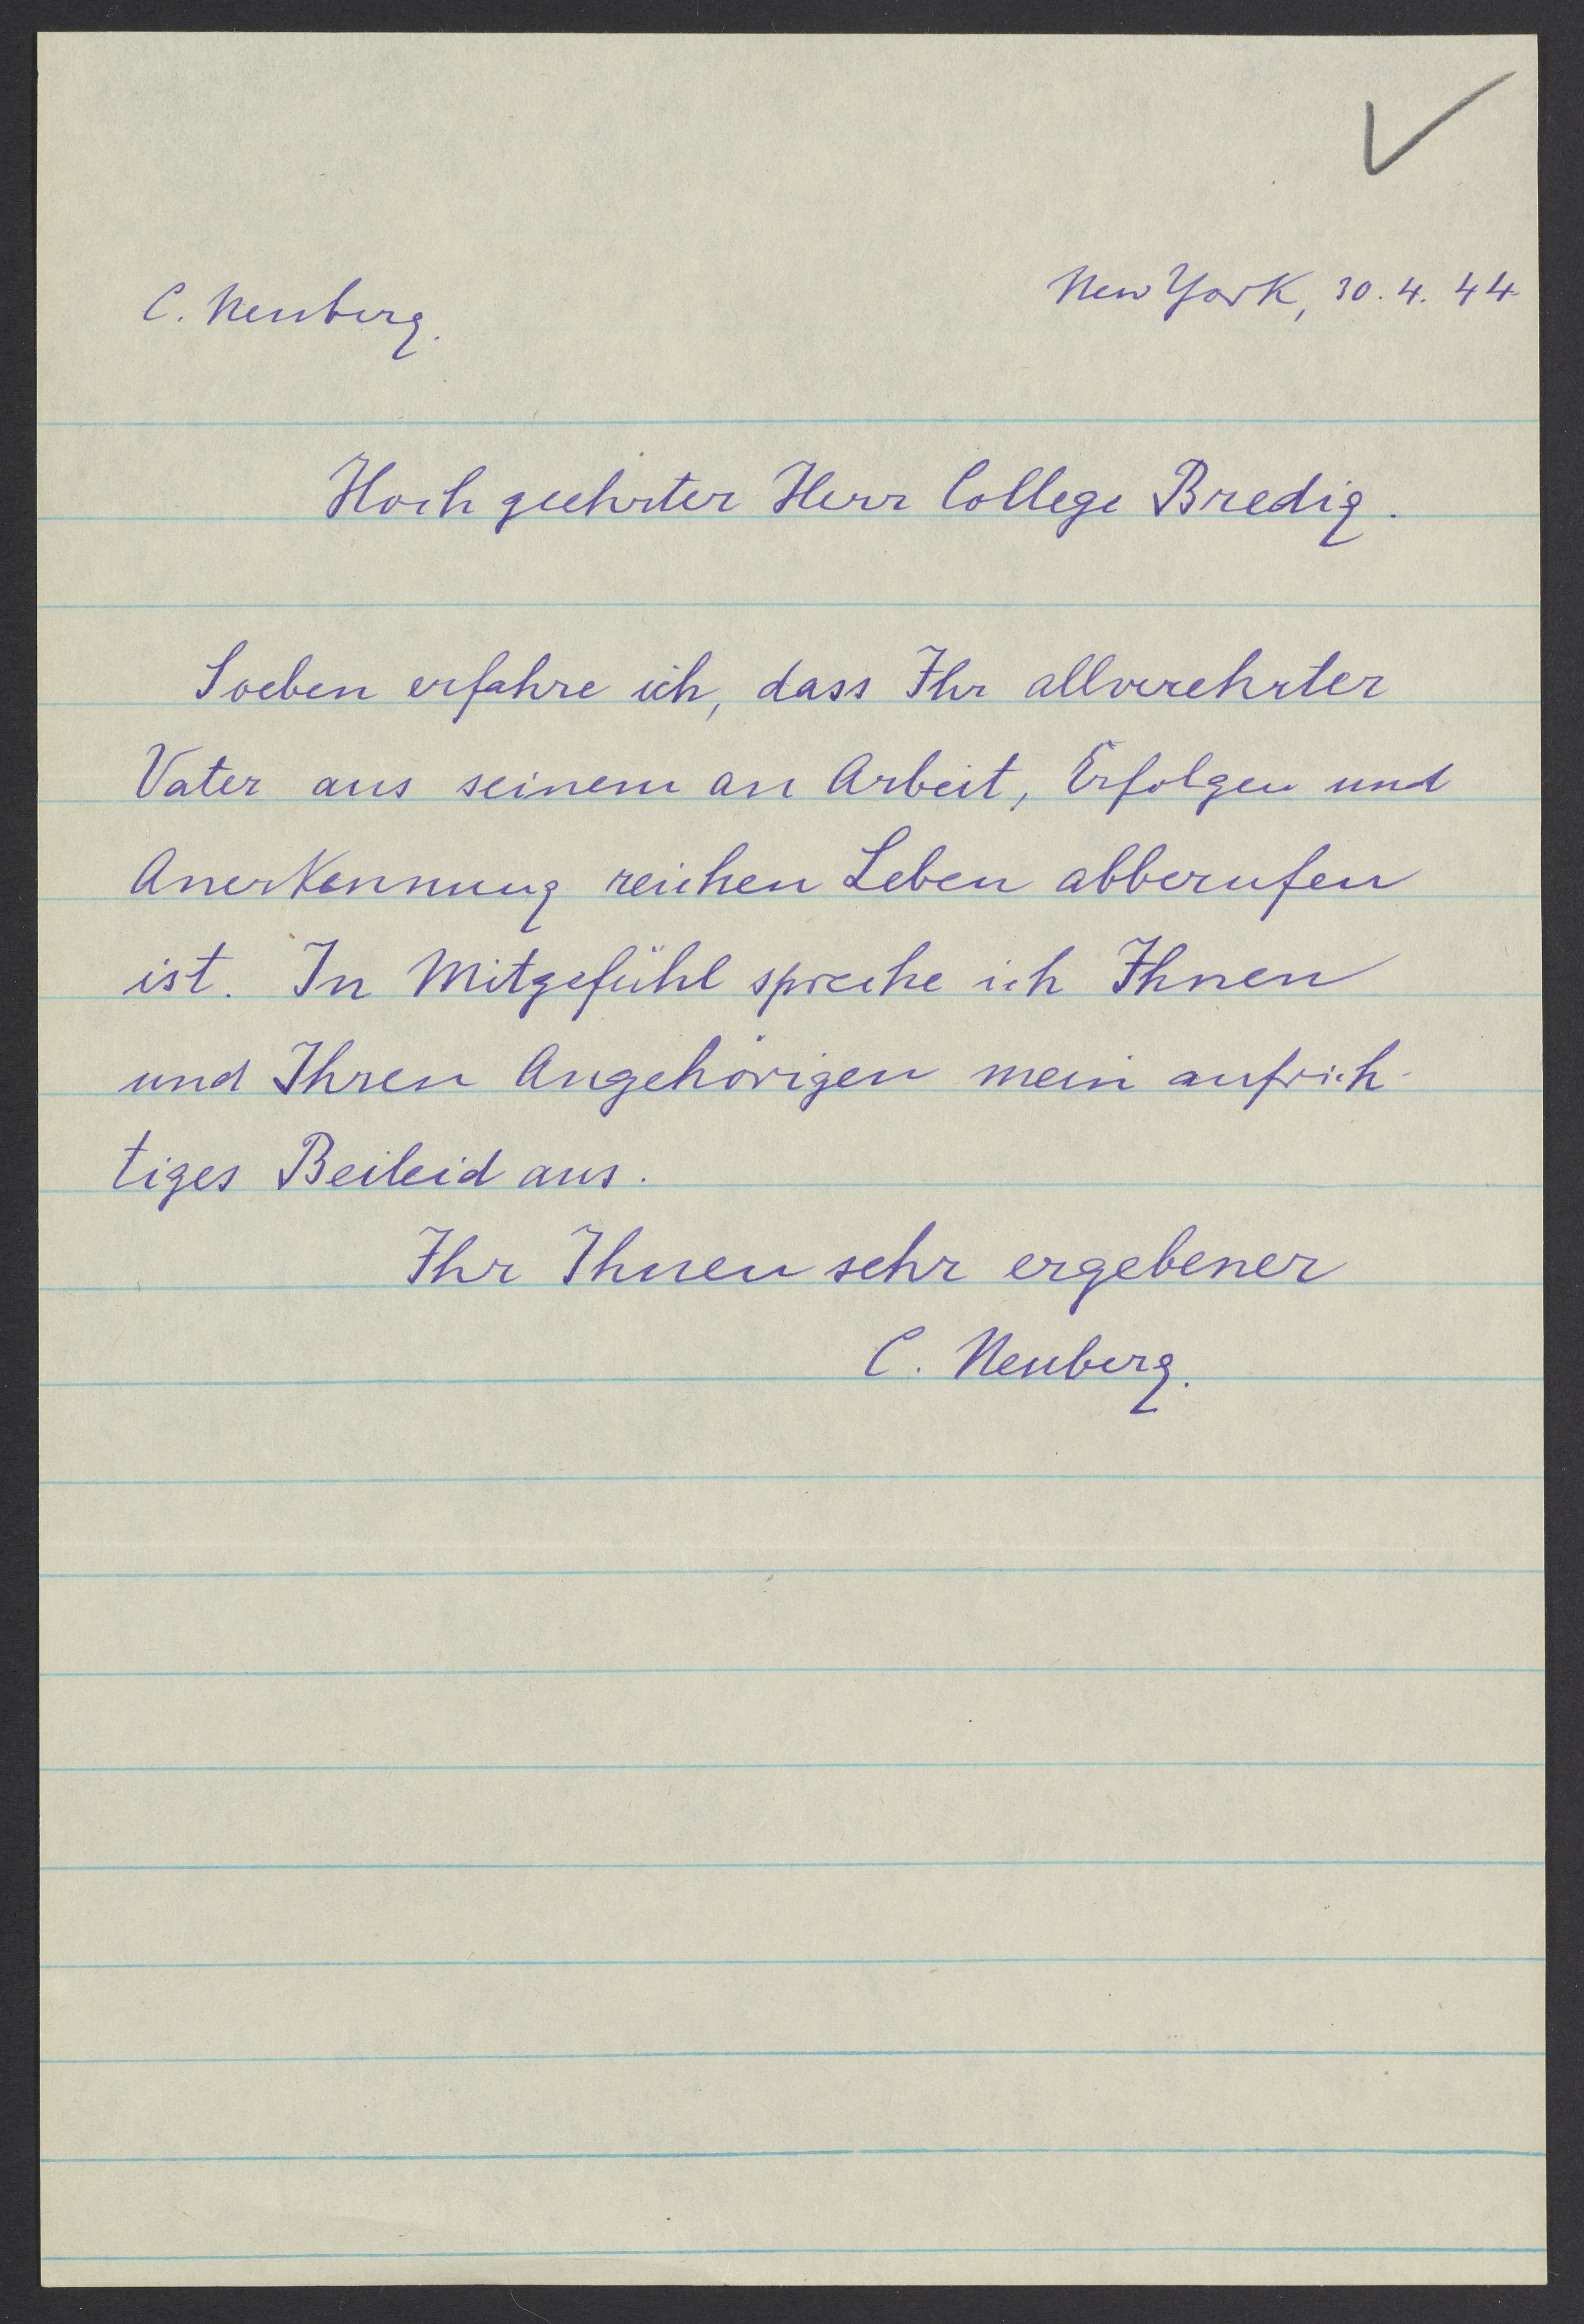 C. Neuberg.
New York, 30. 4. 44
Hochgeehrter Herr College Bredig.
Soeben erfahre ich, dass Ihr allverehrter
Vater aus seinem an Arbeit, Erfolgen und
Anerkennung reichen Leben abberufen
ist. In Mitgefühl spreche ich Ihnen
und Ihren Angehörigen mein aufrich-
tiges Beileid aus.
Ihr Ihnen sehr ergebener
C. Neuberg.